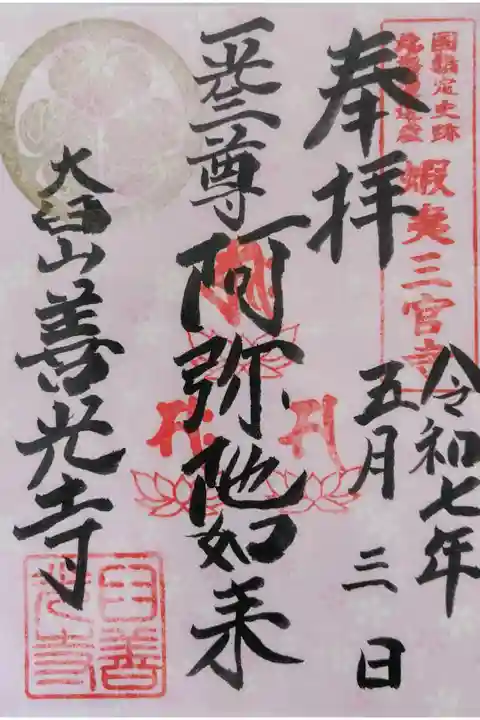 奉拝
国指定史跡
蝦夷三官寺
令和七年
五月三日
一光三尊阿弥陀如来
大臼山善光寺